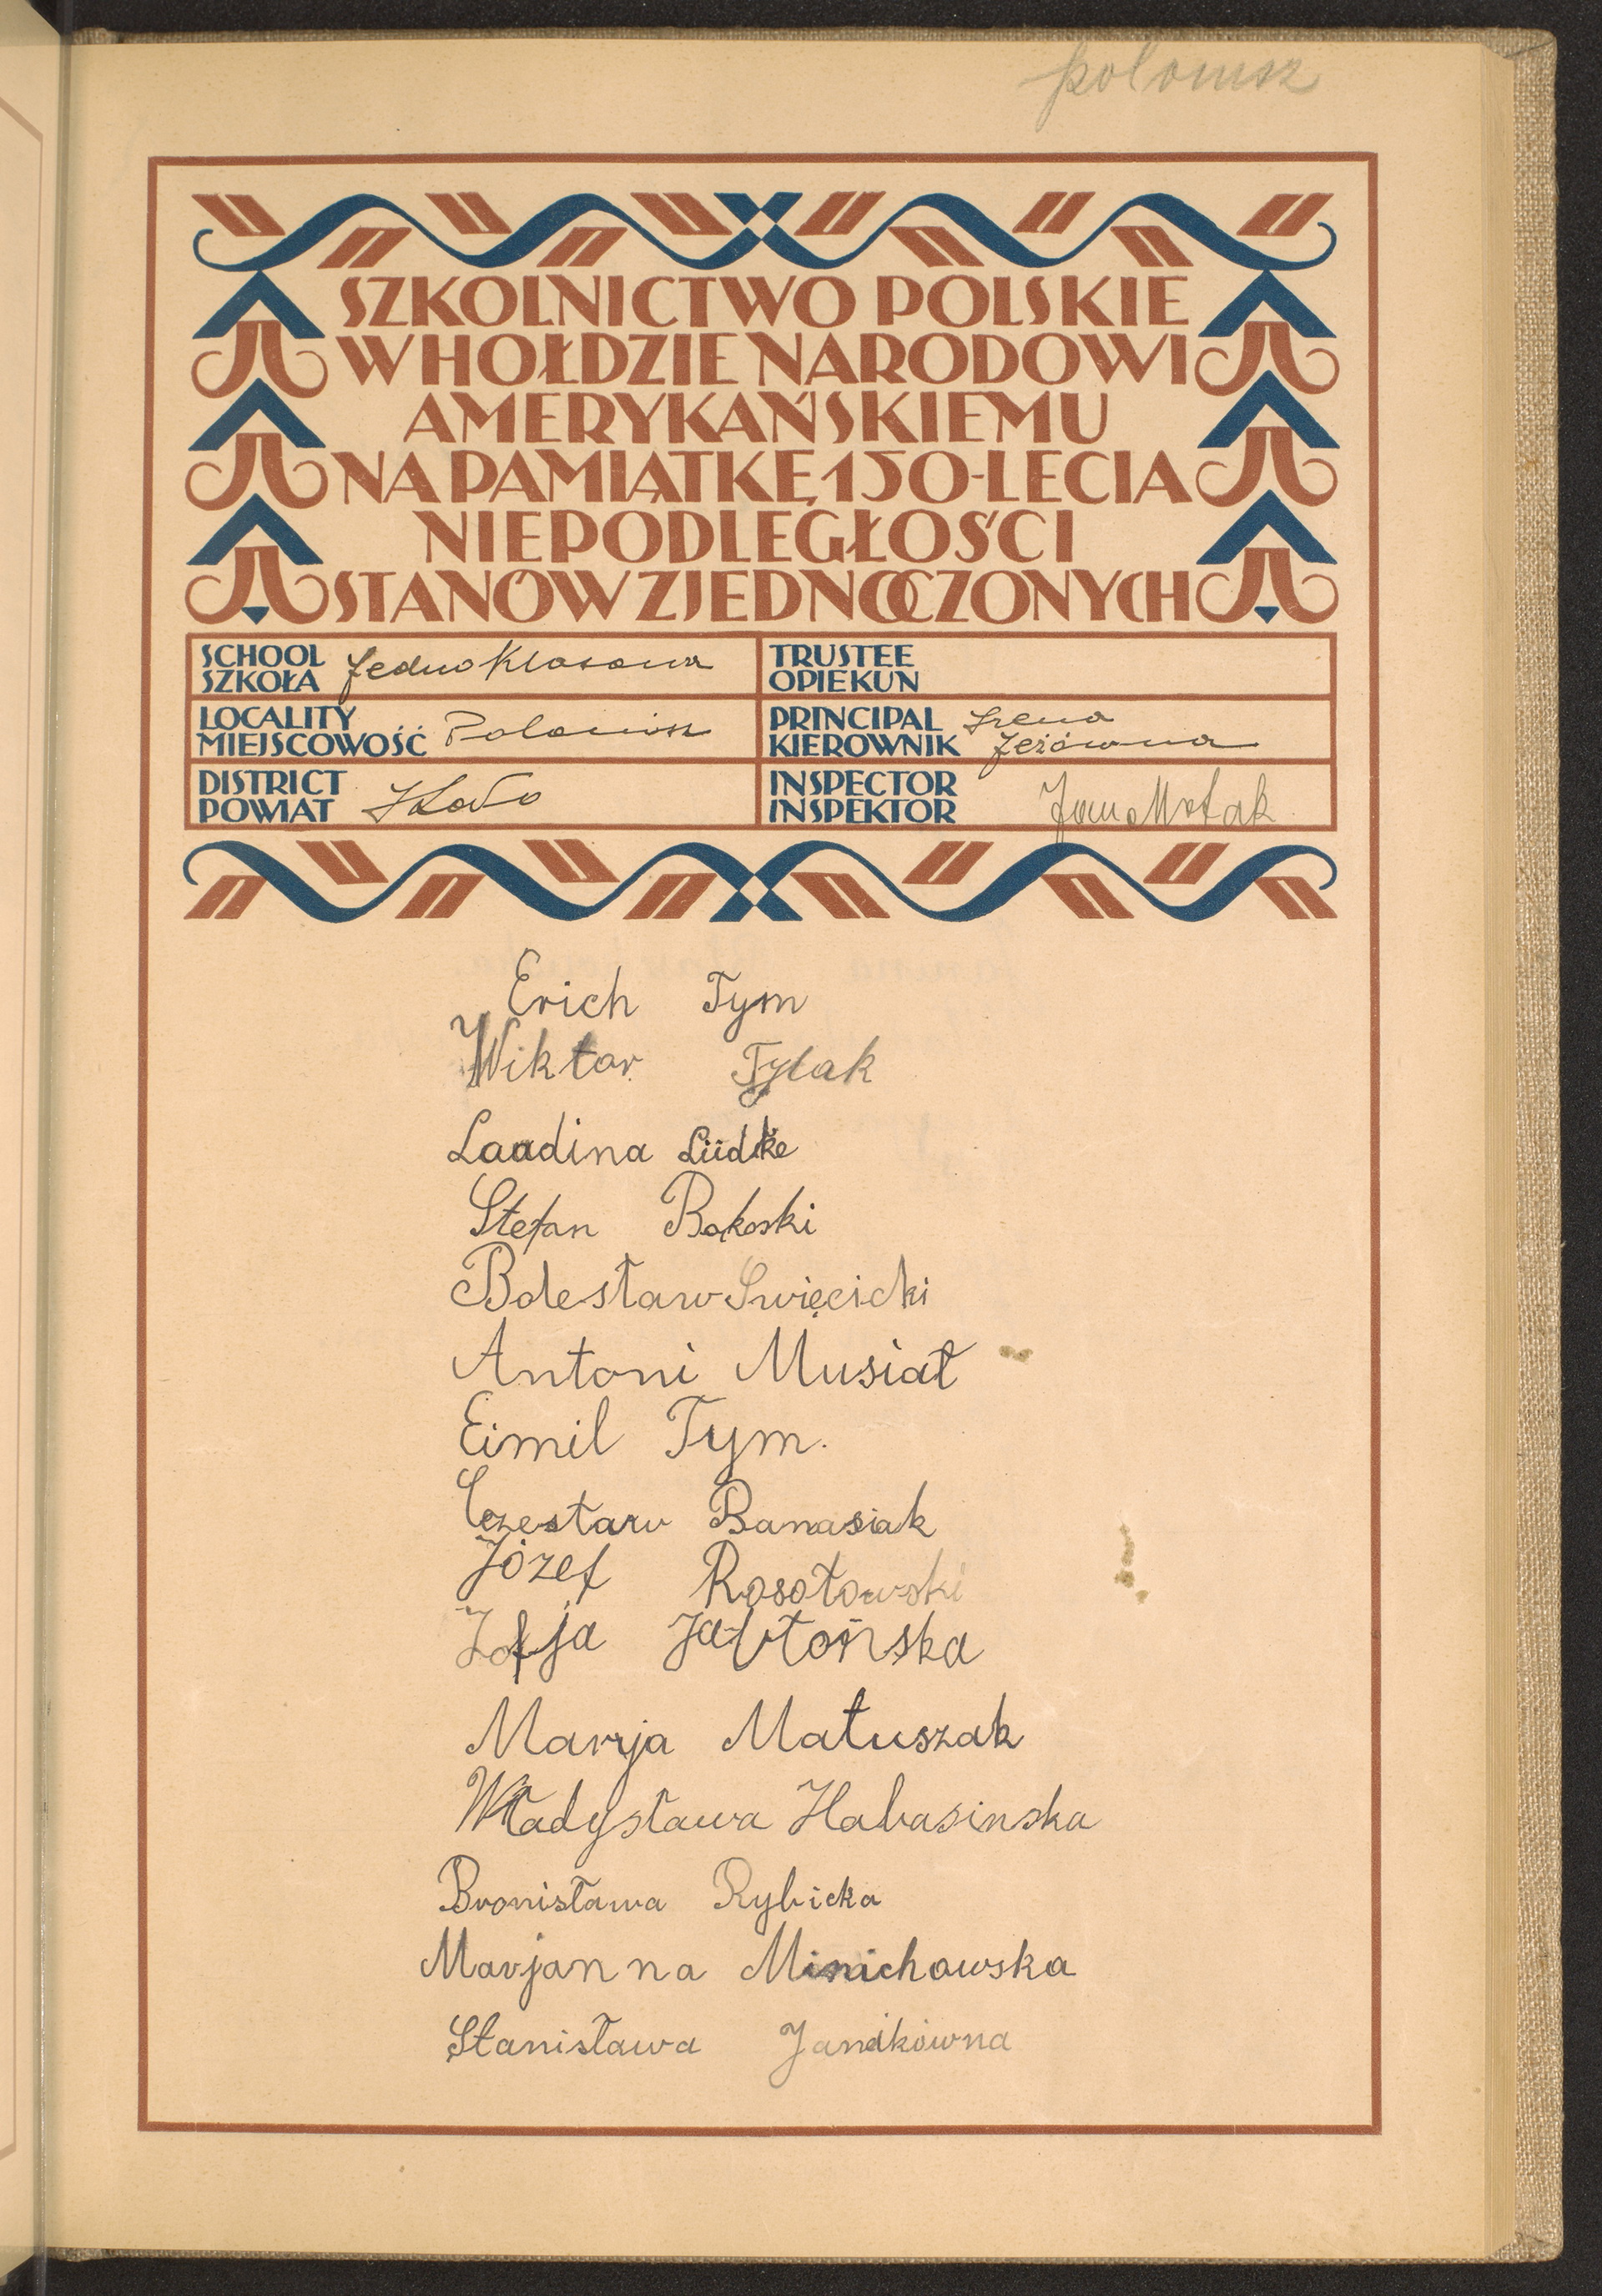 polonisz
SZKOLNICTWO POLSKIE
W HOŁDZIE NARODOWI
AMERYKAŃSKIEMU
NA PAMIĄTKĘ 150-LECIA
NIEPODLEGŁOŚCI
STANÓW ZJEDNOCZONYCH
SCHOOL
SZKOŁA Jednoklasowa
TRUSTEE
OPIEKUN
LOCALITY
MIEJSCOWOŚĆ Polonisz
PRINCIPAL Irena
KIEROWNIK Jeżówna
DISTRICT
POWIAT
INSPECTOR
INSPEKTOR
Erich Tym
Wiktor Tylak
Laudina Lüdke
Stefan Bakoski
Bolesław Swięcicki
Antoni Musiał
Eimil Tym.
Czesław Banasiak
Józef Rosołowski
Zofja Jabłońska
Marja Matuszak
Władysława Habasinska
Bronisława Rybicka
Marjanna Minichowska
Stanisława Janikówna